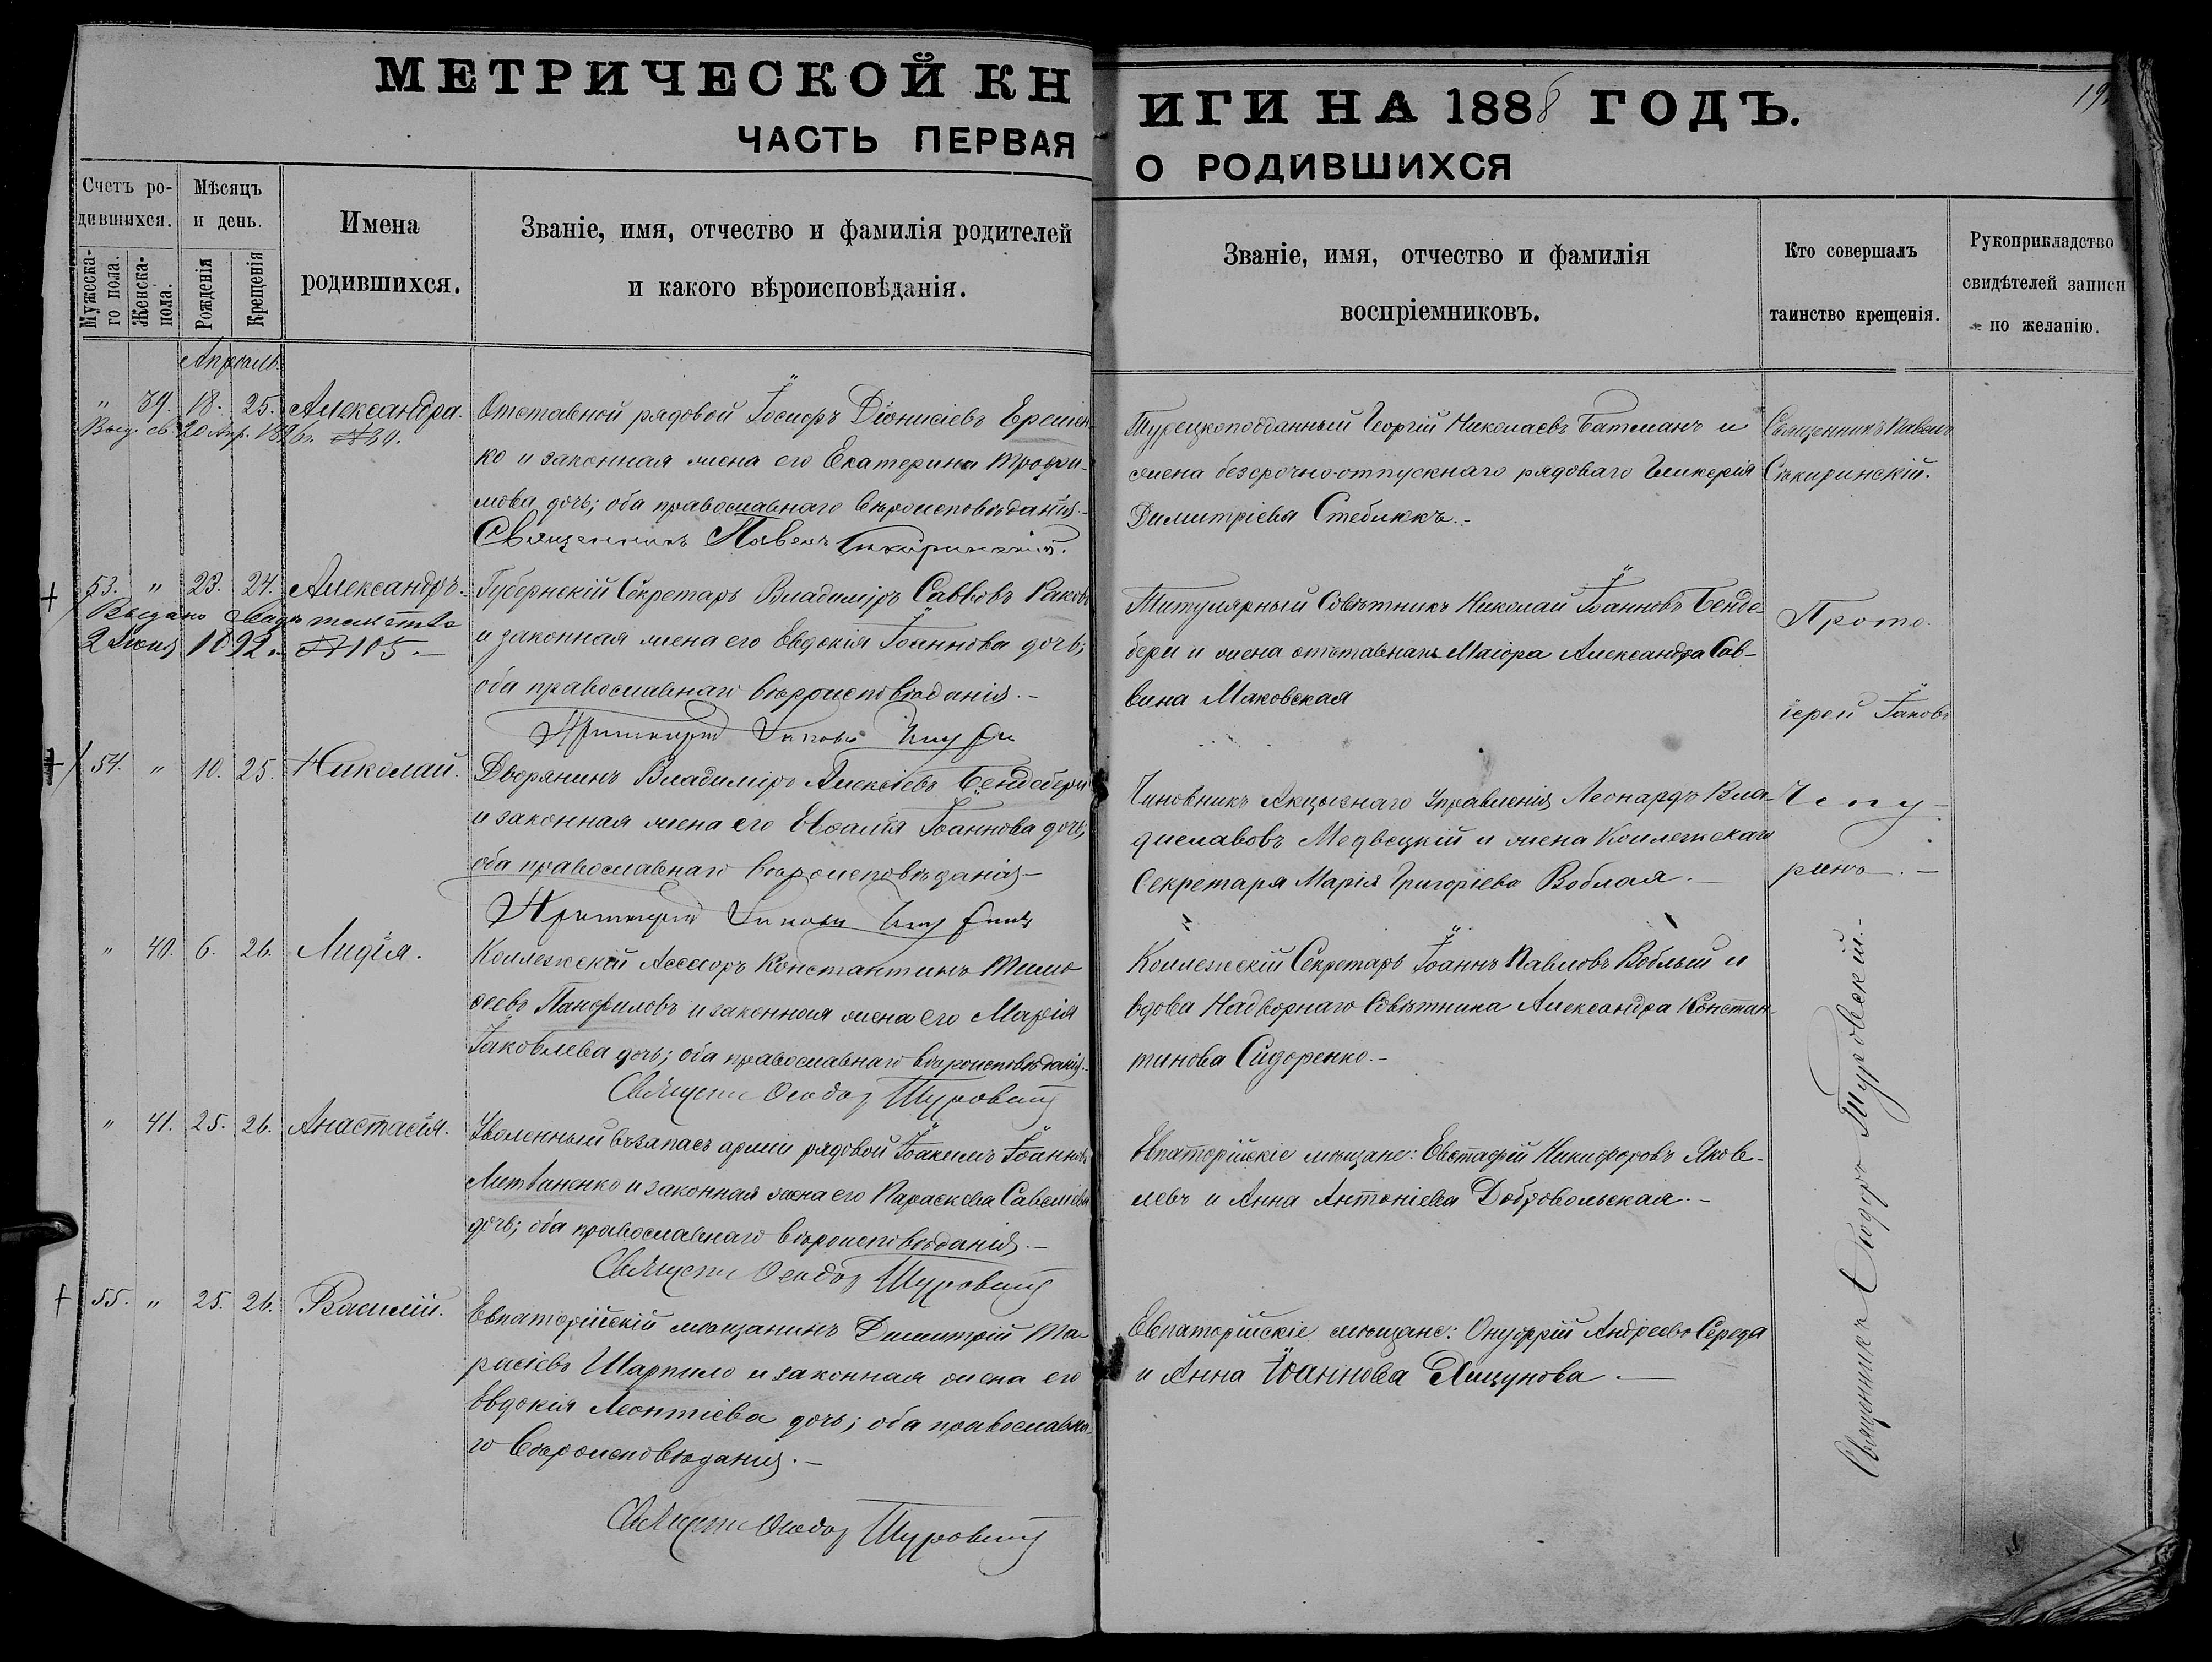 МЕТРИЧЕСКОЙ КНИГИ НА 1888 ГОДЪ.
ЧАСТЬ ПЕРВАЯ О РОДИВШИХСЯ
19
Счетъ родившихся.
Мужескаго пола.
Женска- пола.
Мѣсяцъ и день.
Рожденія
Крещенія
Имена
родившихся.
Званіе, имя, отчество и фамилія родителей
и какого вѣроисповѣданія.
Званіе, имя, отчество и фамилія
воспріемниковъ.
Кто совершалъ
таинство крещенія.
Рукоприкладство
свидѣтелей записи
по желанію.
Апрѣль.
" 39. 18. 25. Александра.
Выд. св. 20 Апр. 1896 г. №
Отставной рядовой Іосифъ Діонисіевъ Еремен-
ко и законная жена его Екатерина Трофи-
мова дочь; оба православнаго вѣроисповѣданія.-
Священникъ Павелъ Сѣкиринскій.
Турецкоподданный Георгій Николаевъ Батманъ и
жена безсрочно-отпускнаго рядоваго Гликерія
Димитріева Стеблюкъ.-
Священникъ Павелъ
Сѣкиринскій.
53. " 23. 24. Александръ.
Выдано свидѣтельство
2 Іюня 1892 г. № 105.-
Губернскій Секретарь Владиміръ Саввовъ Раковъ
и законная жена его Евдокія Іоаннова дочь;
оба православнаго вѣроисповѣданія.-
Протоіерей Іаковъ Чепуринъ
Титулярный Совѣтникъ Николай Іоанновъ Бенде-
бери и жена отставнаго Маіора Александра Сав-
вина Маковская
Прото-
іерей Іаковъ
54. " 10. 25. Николай.
Дворянинъ Владиміръ Алексіевъ Бендебери
и законная жена его Евѳалія Іоаннова дочь;
оба православнаго вѣроисповѣданія.-
Протоіерей Іаковъ Чепуринъ
Чиновникъ Акцизнаго Управленія Леонардъ Вла-
диславовъ Медвецкій и жена Коллежскаго
Секретаря Марія Григоріева Воблая.-
Чепу-
ринъ.-
" 40. 6. 26. Лидія.
Коллежскій Ассесоръ Константинъ Тимо-
ѳеевъ Панфиловъ и законная жена его Марія
Іаковлева дочь; оба православнаго вѣроисповѣданія.
Священникъ Ѳеодоръ Туровскій
Коллежскій Секретарь Іоаннъ Павловъ Воблый и
вдова Надворнаго Совѣтника Александра Констан-
тинова Сидоренко.-
" 41. 25. 26. Анастасія.
Уволенный въ запасъ арміи рядовой Іоакимъ Іоанновъ
Литвиненко и законная жена его Параскева Савеліева
дочь; оба православнаго вѣроисповѣданія.-
Священникъ Ѳеодоръ Туровскій
Евпаторійскіе мѣщане: Евстафій Никифоровъ Яков-
левъ и Анна Антоніева Добровольская.-
Священникъ Ѳеодоръ Туровскій.-
55. " 25. 26. Василій.
Евпаторійскій мѣщанинъ Димитрій Та-
расіевъ Шарпило и законная жена его
Евдокія Леонтіева дочь; оба православна-
го вѣроисповѣданія.-
Священникъ Ѳеодоръ Туровскій
Евпаторійскіе мѣщане: Онуфрій Андреевъ Середа
и Анна Іоаннова